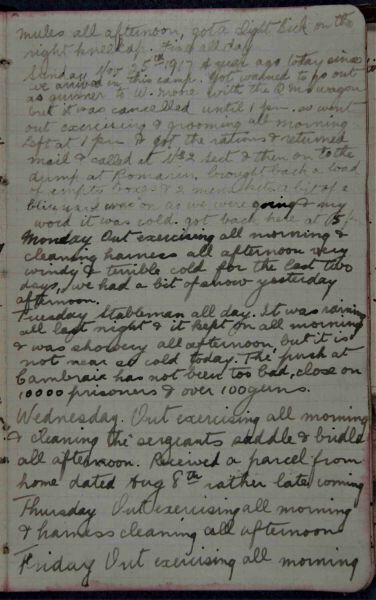 mules all afternoon, got a slight kick on the
right knee cap. Fine all day
Sunday Nov 25th 1917 A year ago today since
we arrived in this camp. Got warned to go out
as gunner to W. more with the Q M's wagon
but it was cancelled until 1 pm. so went
out exercising & grooming all morning
Left at 1 pm & got the rations & returned
mail & called at No 2 Sect & then on to the
dump at Romarin, brought back a load
of empty boxes & 2 men, a bit of a
was on as we were going & my
word it was cold. got back here at
Monday Out exercising all morning &
cleaning harness all afternoon very
windy & terrible cold for the last two
days, we had a bit of snow yesterday
afternoon.
Tuesday Stableman all day. It was raining
all last night & it kept on all morning
& was showery all afternoon, but it is
not near so cold today. The push at
Cambraix has not been too bad, close on
10000 prisoners & over 100 guns.
Wednesday. Out exercising all morning
& cleaning the sergeants saddle & bridle
all afternoon. Received a parcel from
home dated Aug 8th rather late coming
Thursday Out exercising all morning
& harness cleaning all afternoon
Friday Out exercising all morning